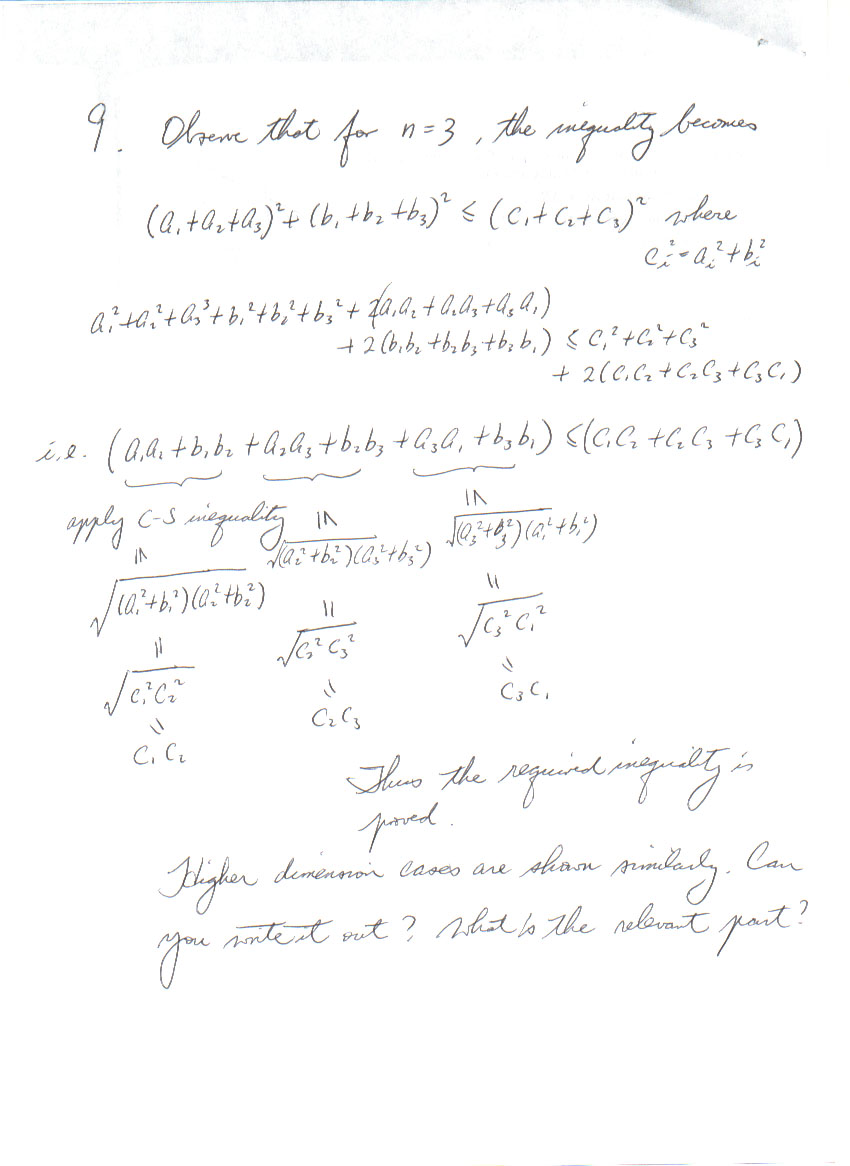 9. Observe that for n=3, the inequality becomes
(a₁+a₂+a₃)²+(b₁+b₂+b₃)² ≤ (c₁+c₂+c₃)² where
cᵢ²=aᵢ²+bᵢ²
a₁²+a₂²+a₃³+b₁²+b₂²+b₃²+2(a₁a₂+a₂a₃+a₃a₁)
+2(b₁b₂+b₂b₃+b₃b₁) ≤ c₁²+c₂²+c₃²
+ 2(c₁c₂+c₂c₃+c₃c₁)
i.e. (a₁a₂+b₁b₂+a₂a₃+b₂b₃+a₃a₁+b₃b₁) ≤(c₁c₂+c₂c₃+c₃c₁)
apply C-S inequality
√(a₁²+b₁²)(a₂²+b₂²) √(a₂²+b₂²)(a₃²+b₃²) √(a₃²+b₃²)(a₁²+b₁²)
√c₁²c₂² √c₂²c₃² √c₃²c₁²
c₁c₂ c₂c₃ c₃c₁
Thus the required inequality is
proved.
Higher dimension cases are shown similarly. Can
you write it out? What is the relevant part?